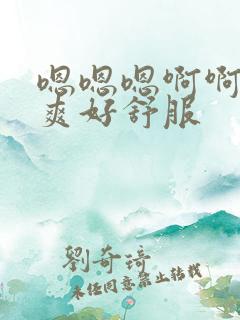 嗯嗯嗯啊啊
爽好舒服
劉奇琦
未经同意禁止转载